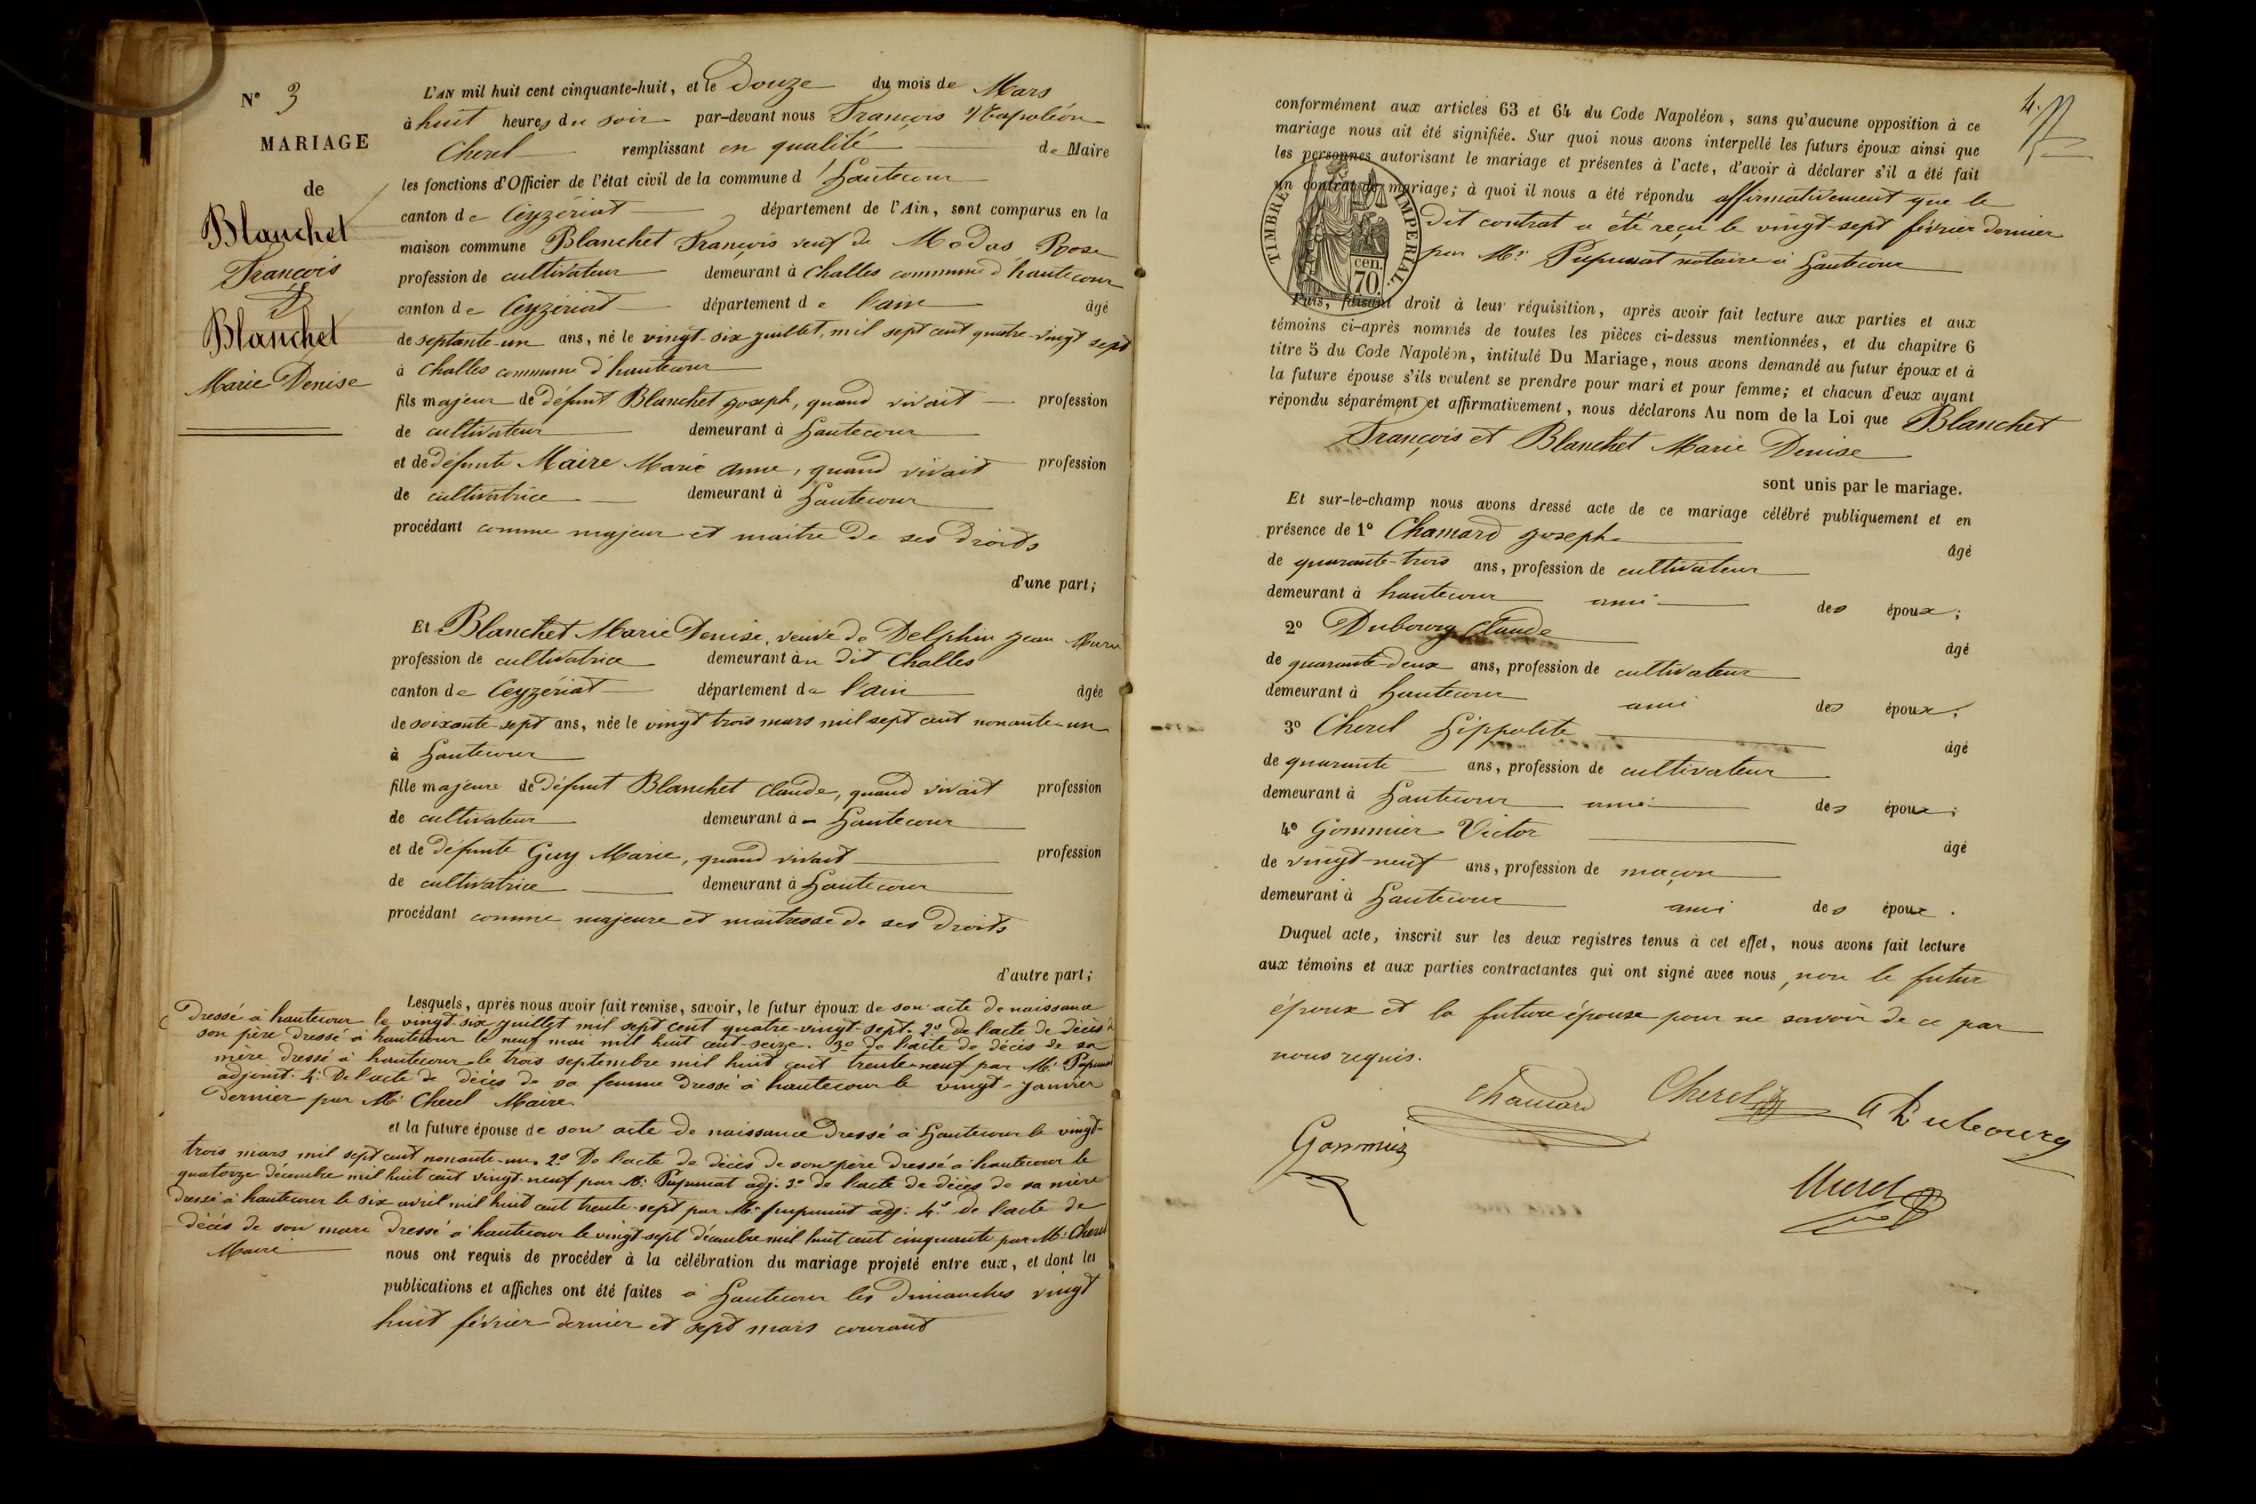 N° 3
MARIAGE
de
Blanchet
François
&
Blanchet
Marie Denise
L'AN mil huit cent cinquante-huit, et le Douze du mois de Mars
à huit heures du soir par-devant nous François Napoléon
Cherel remplissant en qualité de Maire
les fonctions d'Officier de l'état civil de la commune d'Hautecour
canton de Ceyzériat département de l'Ain, sont comparus en la
maison commune Blanchet François veuf de Modas Rose
profession de cultivateur demeurant à Challes commune d'hautecour
canton de Ceyzériat département de l'ain âgé
de septante-un ans, né le vingt-six juillet, mil sept cent quatre-vingt sept
à Challes commune d'hautecour
fils majeur de défunt Blanchet joseph, quand vivait profession
de cultivateur demeurant à Hautecour
et de défunte Maire Marie anne, quand vivait profession
de cultivatrice demeurant à Hautecour
procédant comme majeur et maitre de ses droits
d'une part;
Et Blanchet Marie Denise, veuve de Delphin jean Marie
profession de cultivatrice demeurant au dit Challes
canton de Ceyzériat département de l'ain âgée
de soixante-sept ans, née le vingt trois mars mil sept cent nonante-un
à Hautecour
fille majeure de défunt Blanchet Claude, quand vivait profession
de cultivateur demeurant à Hautecour
et de défunte Guy Marie, quand vivait profession
de cultivatrice demeurant à Hautecour
procédant comme majeure et maitresse de ses droits
d'autre part;
Lesquels, après nous avoir fait remise, savoir, le futur époux de son acte de naissance
dressé à hautecour le vingt-six juillet mil sept cent quatre-vingt-sept. 2° de l'acte de décès de
son père dressé à hautecour le neuf mai mil huit cent-seize. 3° de l'acte de décès de sa
mère dressé à hautecour le trois septembre mil huit cent trente-neuf par Mr Pupunat
adjoint. 4° De l'acte de décès de sa femme dressé à hautecour le vingt-janvier
dernier par Mr Cherel Maire
et la future épouse de son acte de naissance dressé à Hautecour le vingt-
trois mars mil sept cent nonante-un. 2° De l'acte de décès de son père dressé à hautecour le
quatorze décembre mil huit cent vingt-neuf par Mr Pupunat adj. 3° de l'acte de décès de sa mère
dressé à hautecour le six avril mil huit cent trente-sept par Mr pupunat adj. 4° de l'acte de
décès de son mari dressé à hautecour le vingt-sept décembre mil huit cent cinquante par Mr Cherel
Maire
nous ont requis de procéder à la célébration du mariage projeté entre eux, et dont les
publications et affiches ont été faites à Hautecour les dimanches vingt
huit février dernier et sept mars courant
4.
conformément aux articles 63 et 64 du Code Napoléon, sans qu'aucune opposition à ce
mariage nous ait été signifiée. Sur quoi nous avons interpellé les futurs époux ainsi que
les personnes autorisant le mariage et présentes à l'acte, d'avoir à déclarer s'il a été fait
un contrat de mariage; à quoi il nous a été répondu affirmativement que le
dit contrat a été reçu le vingt-sept février dernier
par Mr Pupunat notaire à Hautecour
TIMBRE IMPERIAL
70 cen.
Puis, faisant droit à leur réquisition, après avoir fait lecture aux parties et aux
témoins ci-après nommés de toutes les pièces ci-dessus mentionnées, et du chapitre 6
titre 5 du Code Napoléon, intitulé Du Mariage, nous avons demandé au futur époux et à
la future épouse s'ils veulent se prendre pour mari et pour femme; et chacun d'eux ayant
répondu séparément et affirmativement, nous déclarons Au nom de la Loi que Blanchet
François et Blanchet Marie Denise
sont unis par le mariage.
Et sur-le-champ nous avons dressé acte de ce mariage célébré publiquement et en
présence de 1° Chamard joseph âgé
de quarante-trois ans, profession de cultivateur
demeurant à hautecour ami des époux;
2° Dubourg Claude âgé
de quarante-deux ans, profession de cultivateur
demeurant à hautecour ami des époux;
3° Cherel Hippolite âgé
de quarante ans, profession de cultivateur
demeurant à Hautecour ami des époux;
4° Gommier Victor âgé
de vingt-neuf ans, profession de maçon
demeurant à Hautecour ami des époux.
Duquel acte, inscrit sur les deux registres tenus à cet effet, nous avons fait lecture
aux témoins et aux parties contractantes qui ont signé avec nous, non le futur
époux et la future épouse pour ne savoir de ce par
nous requis.
Chamard Cherel Dubourg
Gommier
Cherel